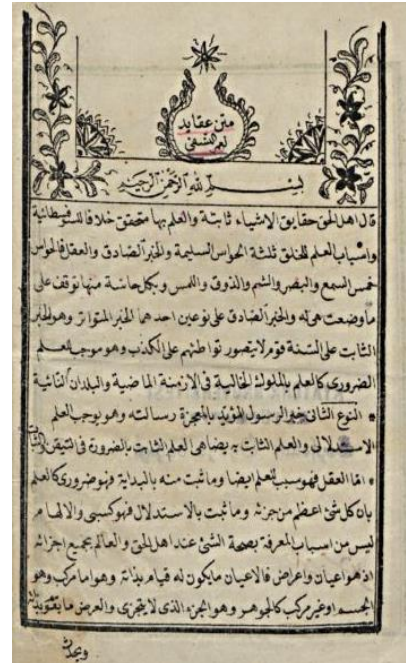 متن عقايد
لعمر النسفى
بسم الله الرحمن الرحيم
قال اهل الحق حقايق الاشياء ثابتة والعلم بها متحقق خلافا للسوفسطائية
واسباب العلم للخلق ثلثة الحواس السليمة والخبر الصادق والعقل فالحواس
خمس السمع والبصر والشم والذوق واللمس وبكل حاسة منها توقف على
ما وضعت هى له والخبر الصادق على نوعين احدهما الخبر المتواتر وهو الخبر
الثابت على السنة قوم لا يتصور تواطئهم على الكذب وهو موجب للعلم
الضرورى كالعلم بالملوك الخالية فى الازمنة الماضية والبلدان النائية
* النوع الثانى خبر الرسول المؤيد بالمعجزة رسالته وهو يوجب العلم
الاستدلالى والعلم الثابت به يضاهى لعلم الثابت بالضرورة فى التيقن والثبات
* امّا العقل فهو سبب للعلم ايضا وما ثبت منه بالبداية فهو ضرورى كالعلم
بان كل شئ اعظم من جزئه وما ثبت بالاستدلال فهو كسبى والالهام
ليس من اسباب المعرفة بصحة الشئ عند اهل الحق والعالم بجميع اجزائه
اذ هو اعيان واعراض فالاعيان مايكون له قيام بذاته وهو اما مركب وهو
الجسم او غير مركب كالجوهر وهو الجزء الذى لا يتجزى والعرض ما يقوم بذاته
ويحدث